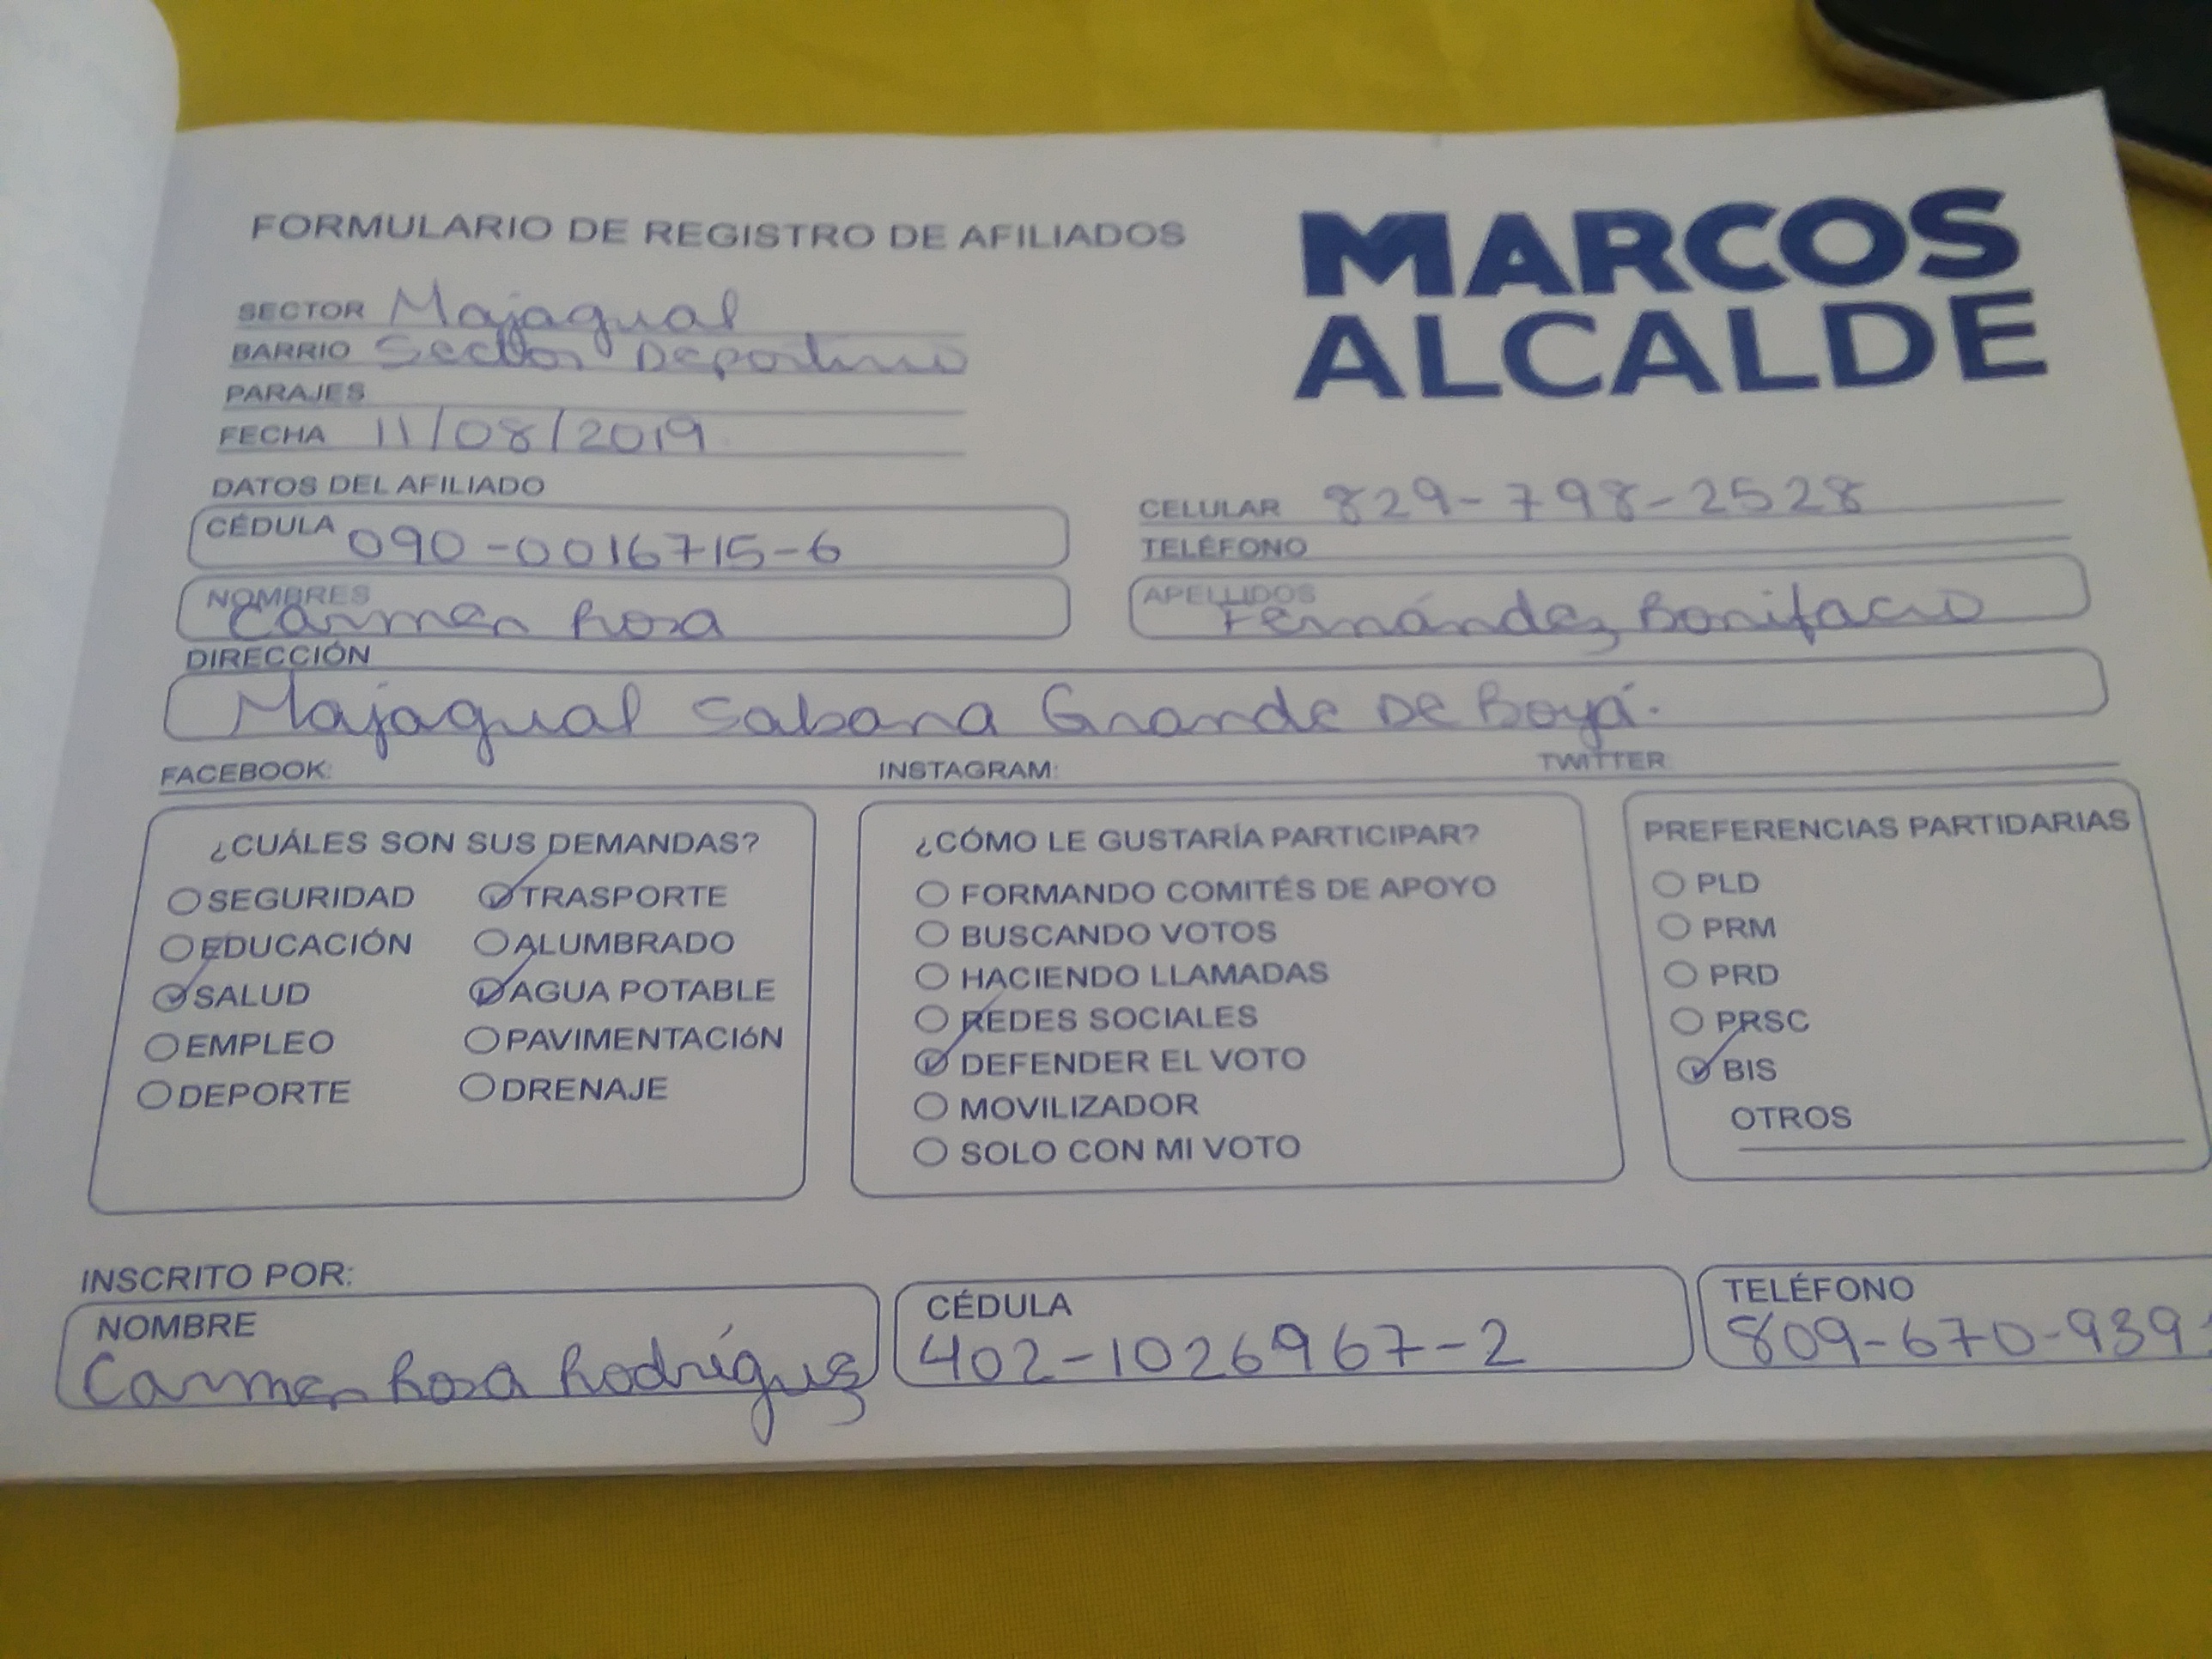 FORMULARIO DE REGISTRO DE AFILIADOS
MARCOS
ALCALDE
SECTOR Majagual
BARRIO Sector Deportivo
PARAJES
FECHA 11/08/2019
DATOS DEL AFILIADO
CÉDULA 090-0016715-6
CELULAR 829-798-2528
TELÉFONO
NOMBRES Carmen Rosa
APELLIDOS Fernández Bonifacio
DIRECCIÓN
Majagual Sabana Grande De Boyá.
FACEBOOK: INSTAGRAM: TWITTER
¿CUÁLES SON SUS DEMANDAS?
SEGURIDAD TRASPORTE
EDUCACIÓN ALUMBRADO
SALUD AGUA POTABLE
EMPLEO PAVIMENTACIóN
DEPORTE DRENAJE
¿CÓMO LE GUSTARÍA PARTICIPAR?
FORMANDO COMITÉS DE APOYO
BUSCANDO VOTOS
HACIENDO LLAMADAS
REDES SOCIALES
DEFENDER EL VOTO
MOVILIZADOR
SOLO CON MI VOTO
PREFERENCIAS PARTIDARIAS
PLD
PRM
PRD
PRSC
BIS
OTROS
INSCRITO POR:
NOMBRE
Carmen Rosa Rodríguez
CÉDULA
402-1026967-2
TELÉFONO
809-670-939